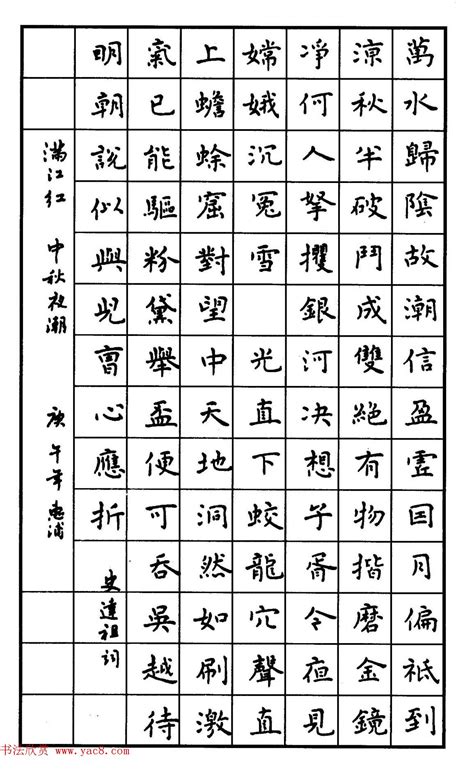 萬水歸陰故潮信盈虛因月偏祗到
涼秋半破鬥成雙絕有物揩磨金鏡
凈何人拏攫銀河决想子胥今夜見
嫦娥沉冤雪 光直下蛟龍穴聲直
上蟾蜍窟對望中天地洞然如刷激
氣已能驅粉黛舉盃便可吞吳越待
明朝說似與兒曹心應折 史達祖詞
滿江红 中秋夜潮 庚午年惠浦
书法欣赏 www.yac8.com